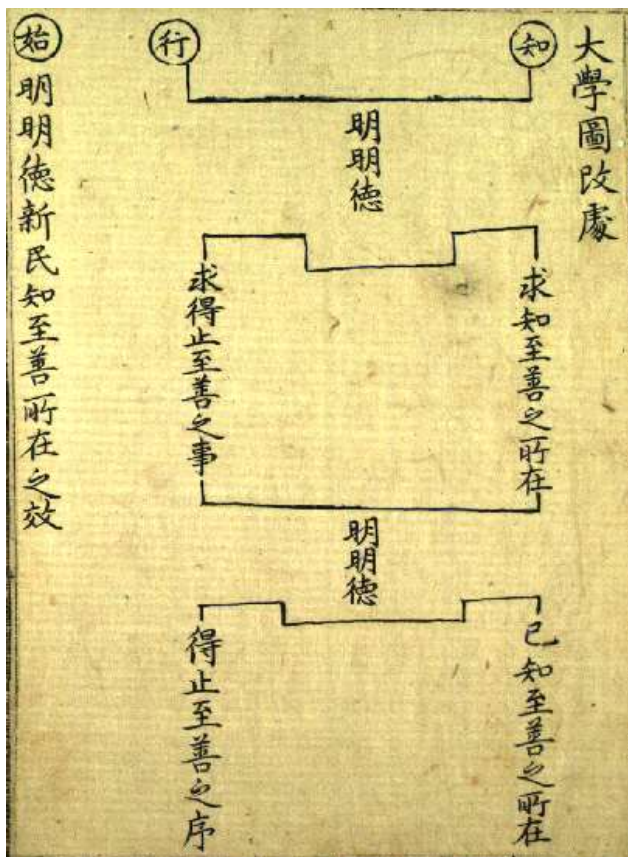 大學圖改處
知
行
明明德
求知至善之所在
求得止至善之事
明明德
已知至善之所在
得止至善之序
始
明明德新民知至善所在之效